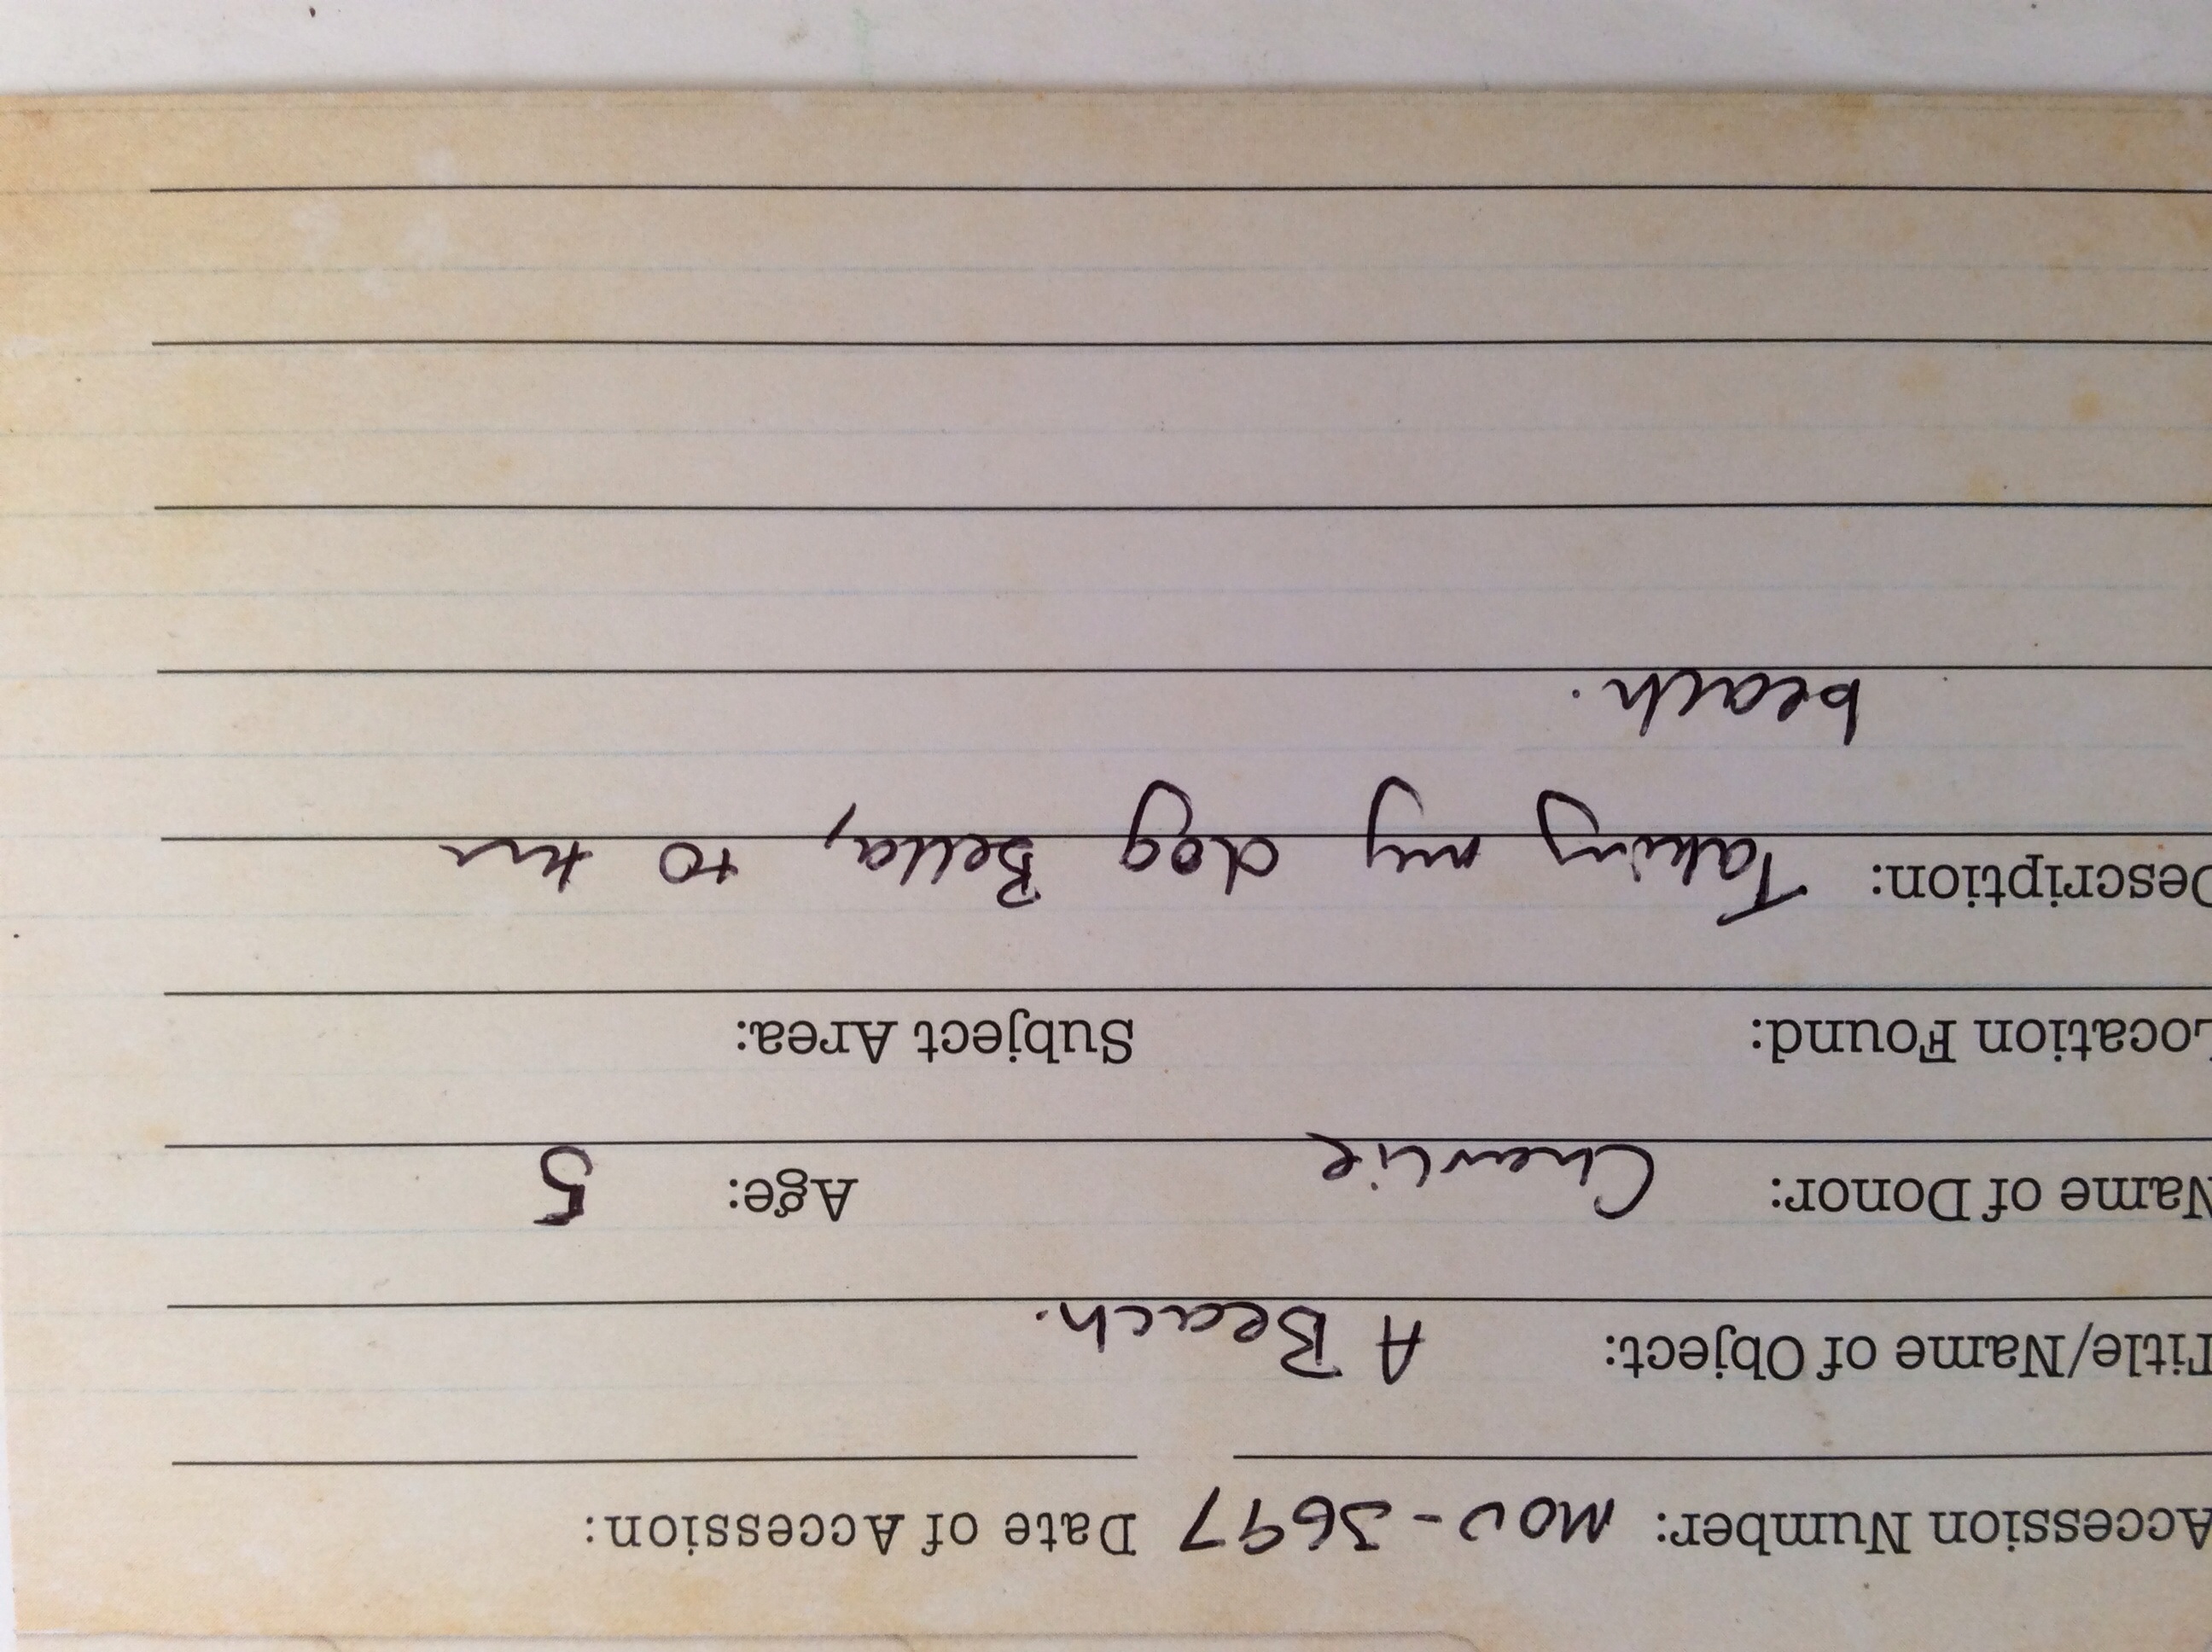 Accession Number: MOU-3697 Date of Accession:
Title/Name of Object: A Beach.
Name of Donor: Charlie Age: 5
Location Found: Subject Area:
Description: Taking my dog Bella, to the
beach.